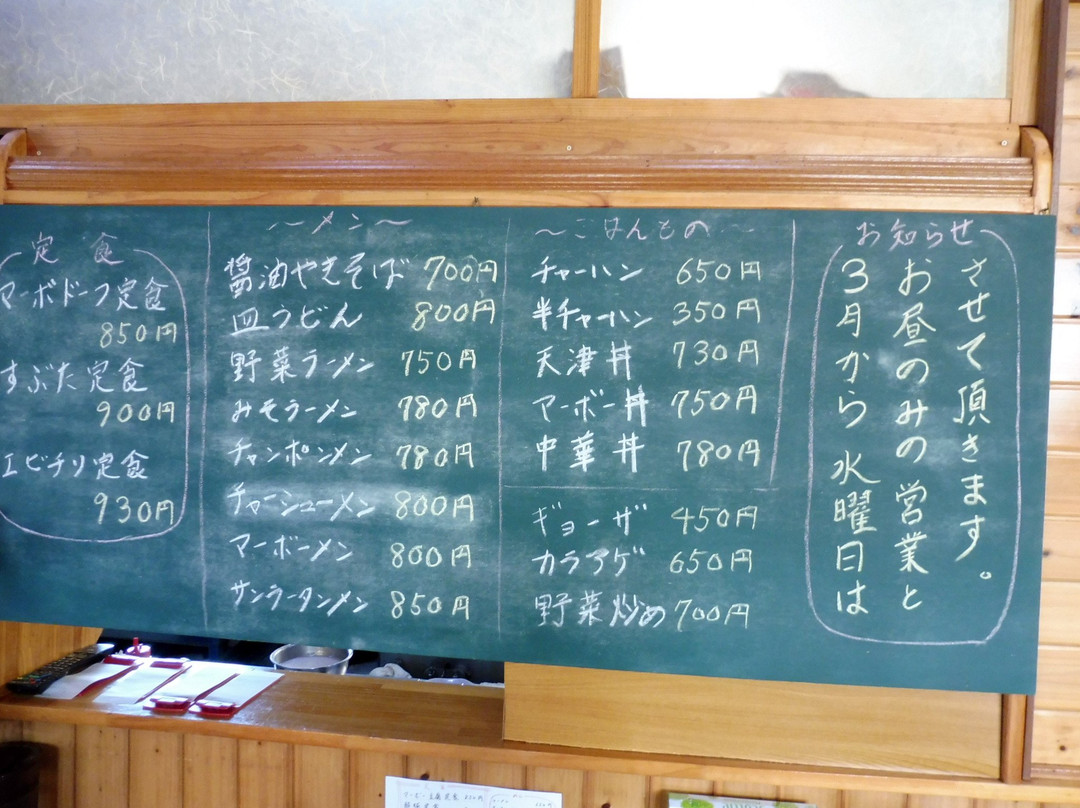 定食
マーボドーフ定食
850円
すぶた定食
900円
エビチリ定食
930円
〜メン〜
醤油やきそば 700円
皿うどん 800円
野菜ラーメン 750円
みそラーメン 780円
チャンポンメン 780円
チャーシューメン 800円
マーボーメン 800円
サンラータンメン 850円
〜ごはんもの〜
チャーハン 650円
半チャーハン 350円
天津丼 730円
マーボー丼 750円
中華丼 780円
ギョーザ 450円
カラアゲ 650円
野菜炒め 700円
お知らせ
3月から水曜日は
お昼のみの営業と
させて頂きます。